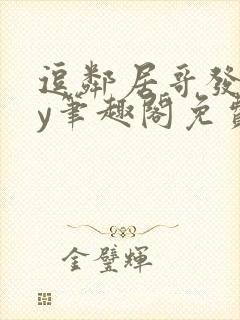 逗鄰居哥發
y筆趣閣免費
金璧輝